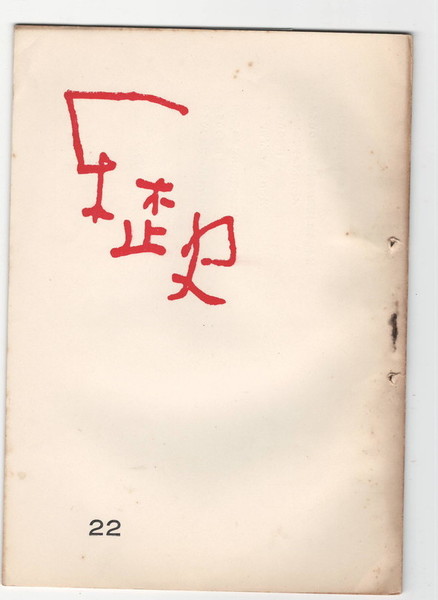 歴史
22